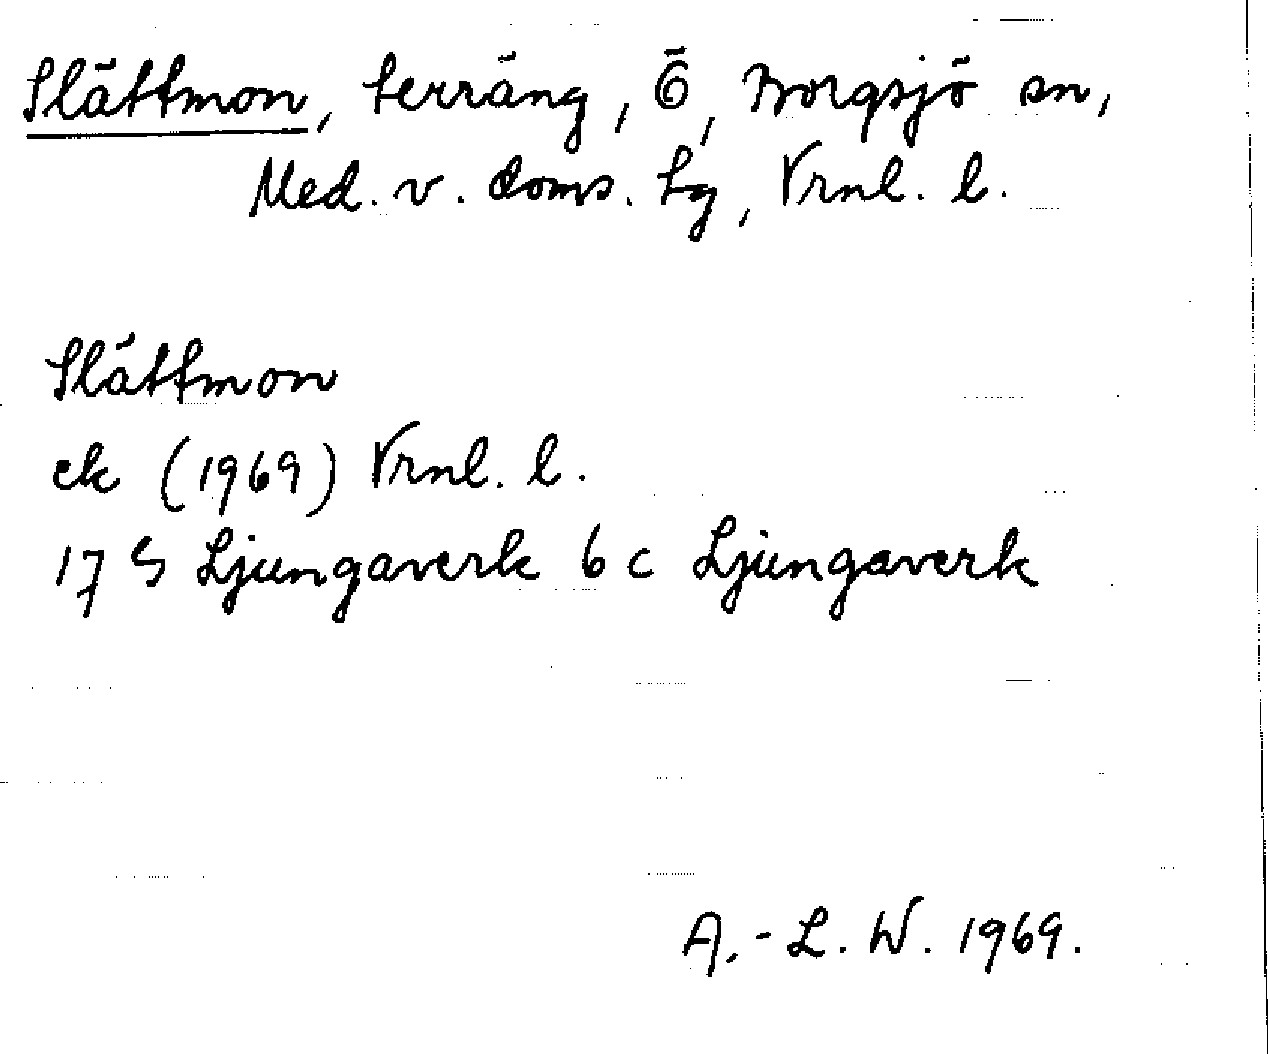 Slättmon, terräng, Ö, Borgsjö sn,
Med. v. doms. hg, Vrnl. l.
Slättmon
ek (1969) Vrnl. l.
17 G Ljungaverk 6 c Ljungaverk
A.-L. W. 1969.